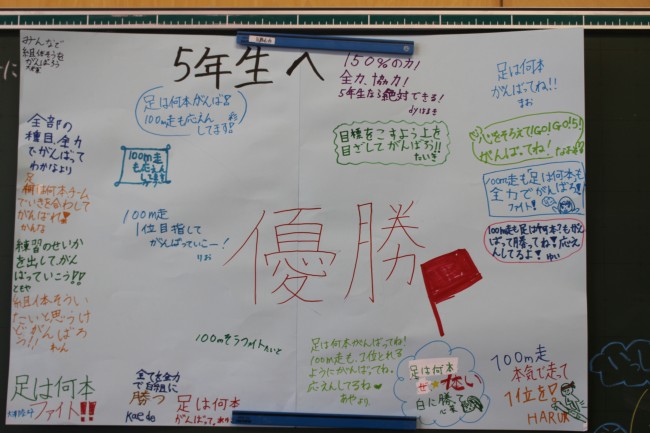 5年生へ
みんなで
組体そうを
がんばろう
150%の力!
全力、協力!
5年生なら絶対できる!
byはるき
足は何本
がんばってね!!
まお
足は何本がんばろ!
100m走も応えん
してます!
全部の
種目、全力
でがんばって
わかなより
目標をこすよう上を
目ざしてがんばろ!!
たいき
心をそろえてGO!GO!5!
がんばってね!なお
100m走
もおうえん
してます!
100m走も足は何本も
全力でがんばろ!
ファイト!
足は何本チーム
でいきを合わして
がんばれ!
かんな
100m走
1位目指して
がんばっていこー!
りお
優勝
100m走も足は何本?もがん
ばって勝ってね!応え
んしてるよ!ゆい
練習のせいか
を出して、がん
ばっていこう!!
ともや
組体そうい
たいと思うけ
どがんばろ
う!!
わん
100mそうファイトたいと
足は何本がんばってね!
100m走も、1位とれる
ようにがんばってね。
応えんしてるね♥
あやより。
足は何本
ぜったい
白に勝って
100m走
本気で走って
1位を!
HARUK
足は何本
ファイト!!
全てを全力
で自分に
勝つ
Kaede
足は何本
がんばって。